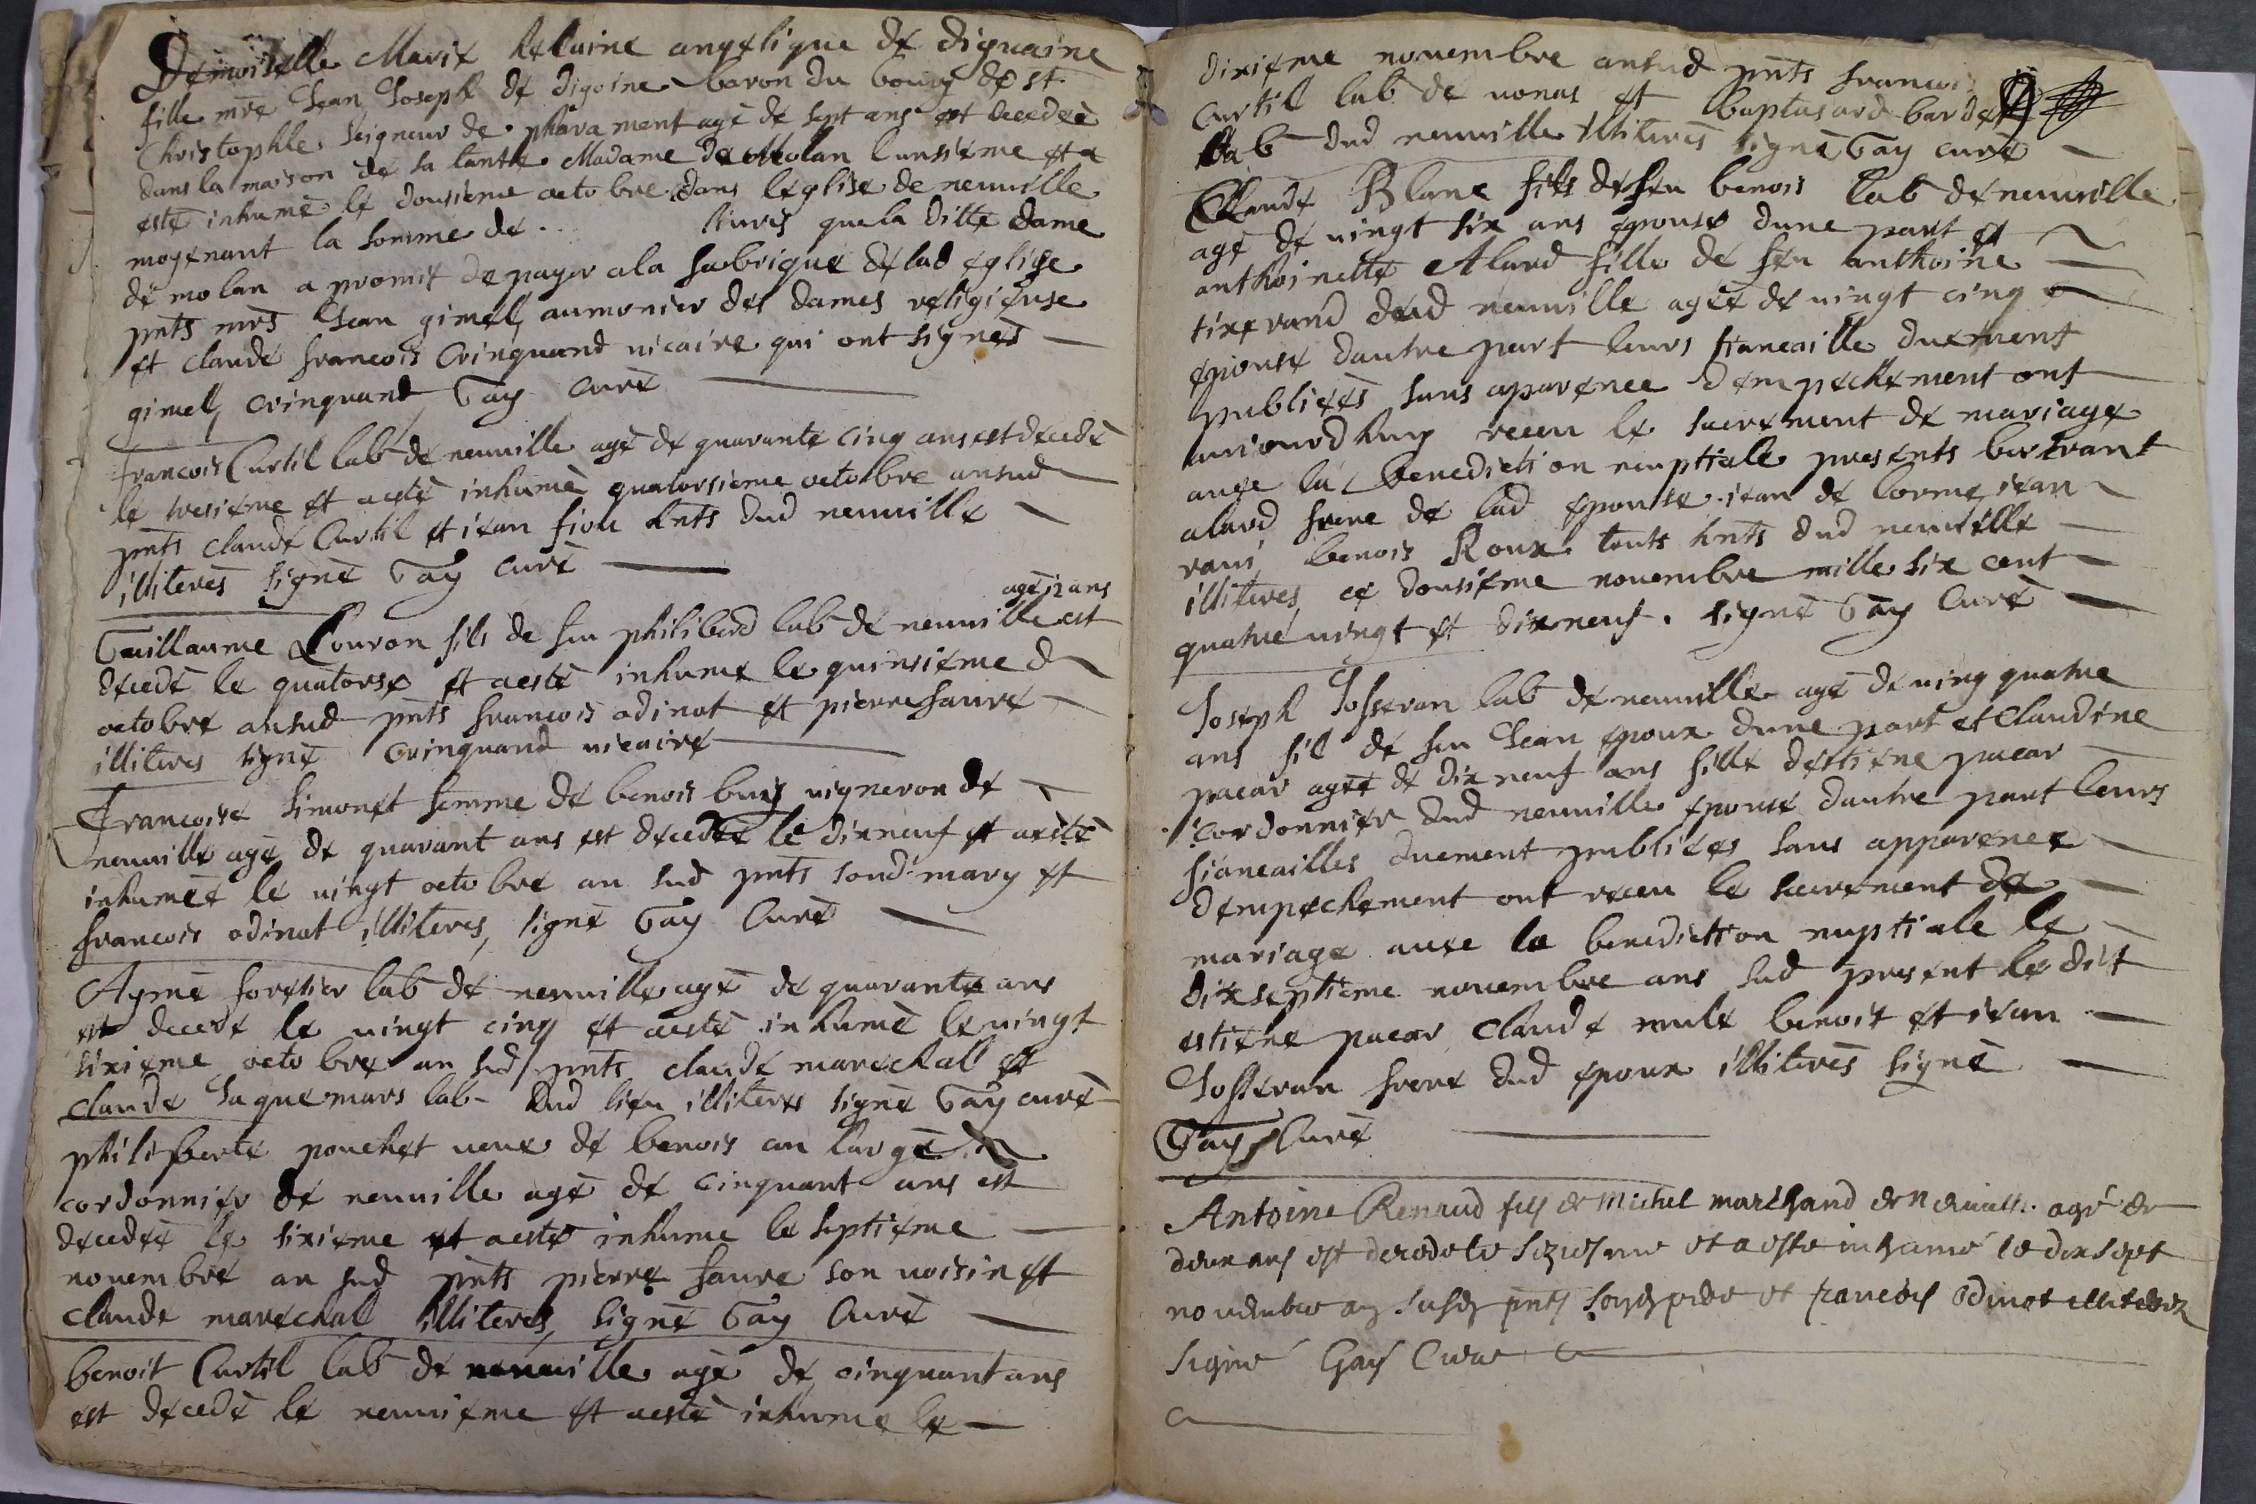 Demoiselle Marie helaine angelique de diguaine
fille mre Jean Joseph de digoine baron du bourg de st
Christophle, seigneur de pharament agé de sept ans est decedeè
dans la maison de sa tante Madame de Molan lunsieme et a
esté inhumè le dousieme octobre dans leglise de neuville
moyenant la somme de ... livres que la ditte dame
de molan a promis de payer a la fabrique de lad eglise
pnts mrs Jean gimel, aumonier des dames religieuse
et claude francois Crinquand vicaire qui ont signes
gimel, crinquand, Gay curé
francois Curtil lab de neuville agè de quarante cinq ans est decedè
le tresieme et aesté inhumè quatorsieme octobre ansud
pnts claude Curtil et jean fion hnts dud neuville
illiterés signé Gay Curé
agé 12 ans
Guillaume Louron fils de feu philiberd lab de neuville est
decedè le quatorse et aesté inhume le quinsieme d
octobre ansud pnts francois odinot et pierre faure
illiteres signé Crinquand vicaire
Francoise simonet femme de benois buis vigneron de
neuville agé de quarant ans est decedée le dixneuf et aèstè
inhumeè le vingt octobre an sud pnts sond mary et
francois odinot illiteres, signé Gay Curé
Aymé foretier lab de neuville agé de quarante ans
est decedé le vingt cinq et aesté inhumè le vingt
sixieme octobre an sud pnts claude marechal et
claude Jaquemars lab dud lieu illiteres signé Gay curé
philiberte pouchet veuve de benois an large
cordonnier de neuville agé de cinquant ans est
decedeè le sixieme et aesté inhume le septieme
novembre an sud pnts pierre faure son voisin et
claude marechal illiteres, signé Gay Curé
benoit Curtil lab de neuville agé de cinquant ans
est decedé le neuvieme et aesté inhume le
dixieme novembre ansud pnts francois
Curtil lab de et bard
lab dud neuville illiteres signé Gay curé
Claude Blanc fils de feu benois lab de neuville
agé de vingt six ans epouse dune part et
anthoinette Alard fille de feu anthoine
tixerand dud neuville agée de vingt cinq
epouse dautre part leurs fiancaille duement
publieés sans aparence dempechement ont
aujourdhuy receu le sacrement de mariage
avec la benediction nuptiale presents bertrant
alard frere de lad epouse jean de lorme, jean
ravi, benois Roux touts hnts dud neuville
illiteres, ce dousieme novembre mille six cent
quatre vingt et dixneuf. signé Gay Curé
Joseph Josseran lab de neuville agé de ving quatre
ans fil de feu Jean epoux dune part et Claudine
pacar ageé de dixneuf ans fille destiene pacar
cordonnier dud neuville epouse dautre part leurs
fiancailles duement publiees sans apparence
dempechement ont receu le sacrement de
mariage avec la benediction nuptiale le
dixseptieme novembre ans sud present le dict
estiene pacar claude mule benoit et jean
Josseran frere dud epoux illiterés signé
Gay Curé
Antoine Renaud fils de Michel marchand de Neuville agé de
deux ans est decedé le seziesme et a esté inhumé le dix sept
novembre an susd pnts pere et francois odinot illiterez
signé Gay Curé